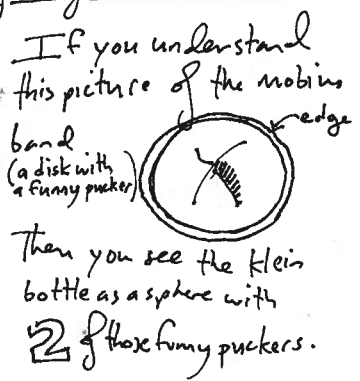 If you understand
this picture of the mobius
band
edge
(a disk with
a funny pucker)
Then you see the klein
bottle as a sphere with
2 of those funny puckers.